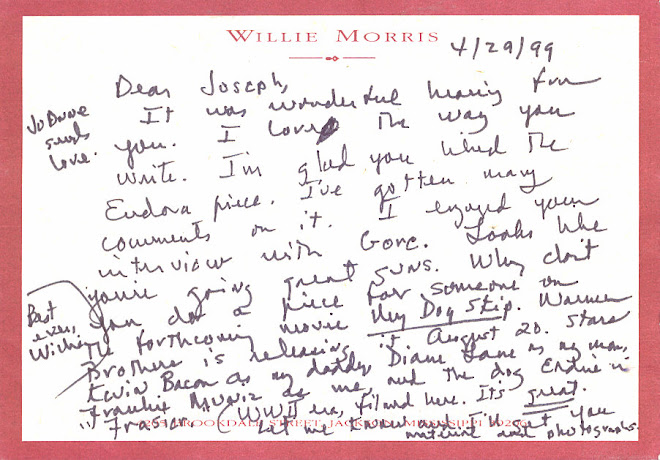 WILLIE MORRIS
4/29/99
Dear Joseph,
It was wonderful hearing from
you. I love the way you
write. I'm glad you liked the
Eudora piece. I've gotten many
comments on it. I enjoyed your
interview with Gore. Looks like
you're going great guns. Why don't
you do a piece for someone on
the forthcoming movie My Dog Skip. Warner
Brothers is releasing it August 20. Stars
Kevin Bacon as my daddy, Diane Lane as my mom,
Frankie Muniz as me, and the dog Eddie in
"Frasier." (WWII era, filmed here. It's great.
Let me know and I'll get you
material and photographs.
BROOKDALE STREET, JACKSON, MISSISSIPPI 39206
Best
ever,
Willie
JoAnne
sends
love.